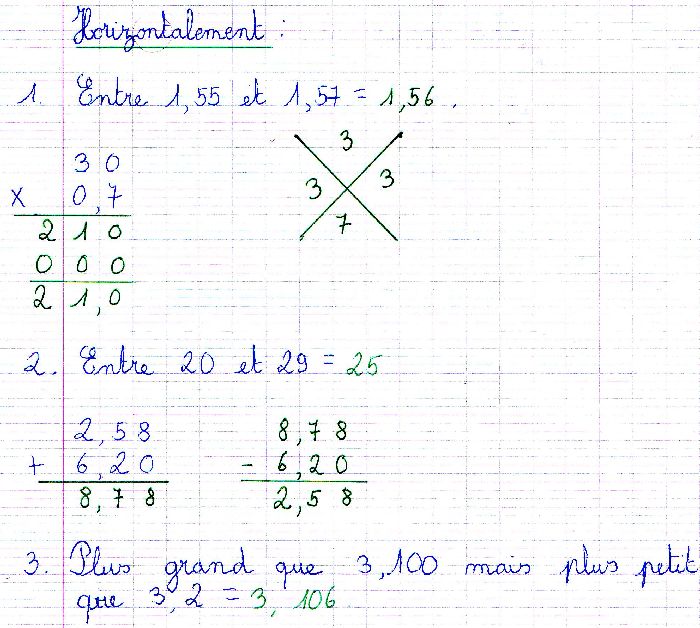 Horizontalement :
1. Entre 1,55 et 1,57 = 1,56.
3 0
x 0,7
2 1 0
0 0 0
2 1,0
3
3 3
7
2. Entre 20 et 29 = 25
2,5 8
+ 6,2 0
8,7 8
8,7 8
- 6,2 0
2,5 8
3. Plus grand que 3,100 mais plus petit
que 3,2 = 3,106